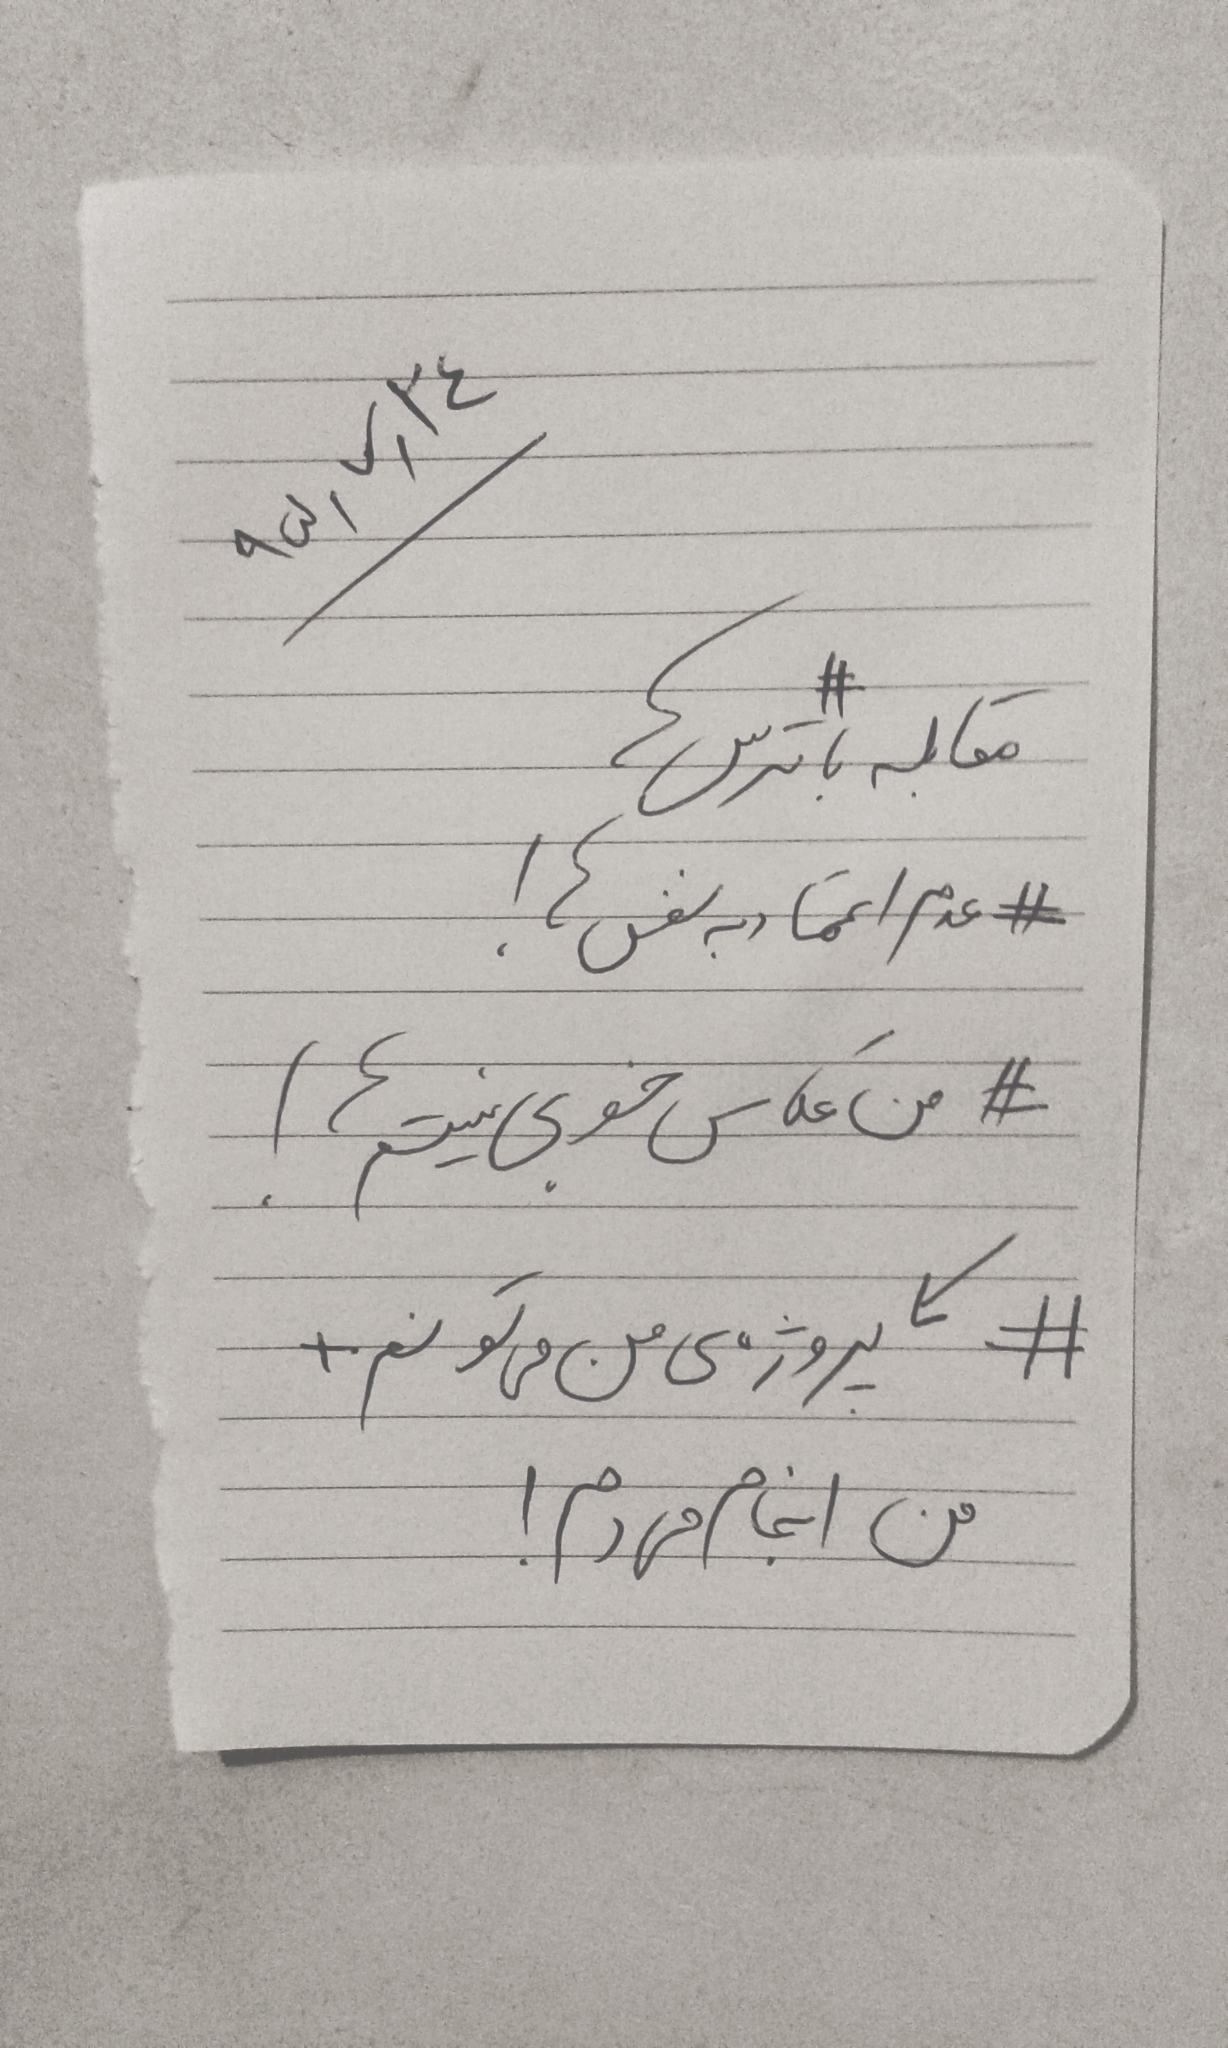 ۹۵,۷,۲۴
مقابله با #ترس؟
#عدم اعتماد به نفس؟!
# من عکاس خوبی نیستم؟!
# پروژه‌ی من می‌تونم +
من انجام می‌دم!